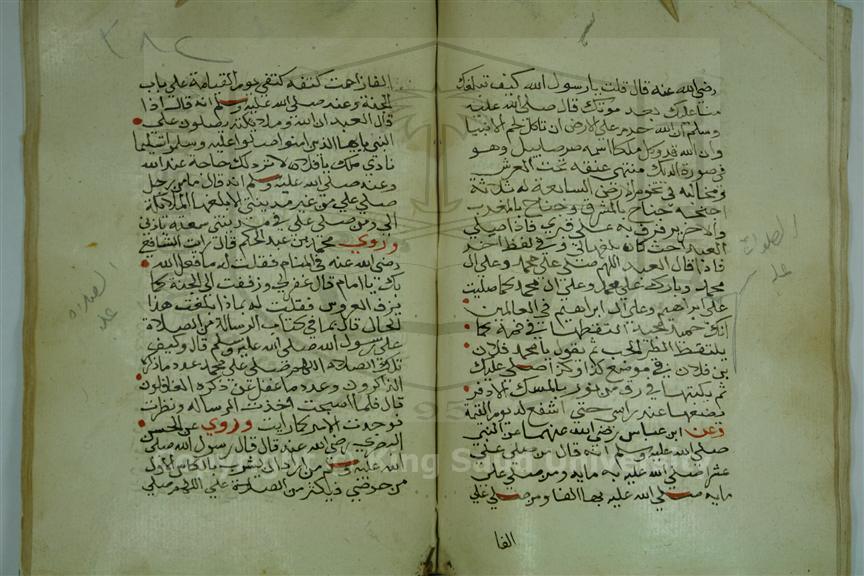 رضي الله عنه قال قلت يا رسول الله كيف تبلغك
صلاتك بعد موتك قال صلى الله عليه
وسلم ان الله حرم على الارض ان تاكل لحم الانبيا
وان الله قد وكل ملكا اسمه صرصاييل وهو
في صورة الديك منتهى عنقه تحت العرش
ومخالبه في تخوم الارض السابعة له ثلاثة
اجنحه جناح بالمشرق وجناح بالمغرب
والاخر يرفرف به على قبري فاذا صلى
العبد حيث كان وفي لفظ اخر
فاذا قال العبد اللهم صلي على محمد وعلى ال
محمد وبارك على محمد وعلى ال محمد كما صليت
على ابراهيم وعلى ال ابراهيم في العالمين
انك حميد مجيد التقطها من فمه كما
يلتقط الطير الحب ثم يقول يا محمد فلان
بن فلان في موضع كذا وكذا صلى عليك
ثم يكتبها في رق من نور بالمسك الاذفر
يضعها عند راسي حتى اشفع له يوم القيمة
وعن ابن عباس رضي الله عنهما عن النبي
صلى الله عليه وسلم انه قال من صلى علي
عشرا صلى الله عليه بها مايه ومن صلى علي
مايه صلى الله عليه بها الفا ومن صلى علي
الفا
الفا زاحمت كتفه كتفي يوم القيامة على باب
الجنة وعنه صلى الله عليه وسلم انه قال اذا
قال العبد ان الله وملائكته يصلون على
النبي يايها الذين امنوا صلوا عليه وسلموا تسليما
نادى ملك يا فلان لا ترد لك حاجة عند الله
وعنه صلى الله عليه وسلم انه قال ما من رجل
صلى علي من غير مدينتي الا بلغها الملائكة
الي ومن صلى علي في مدينتي سمعته باذني
وروي محمد بن عبد الحكم قال رايت الشافعي
رضي الله عنه في المنام فقلت له ما فعل الله
بك يا امام قال غفر لي وزففت الى الجنة كما
يزف العروس فقلت له بماذا بلغت هذا
الحال قال بما في كتاب الرسالة من الصلاة
على رسول الله صلى الله عليه وسلم قال وكيف
تلك الصلاة اللهم صلي على محمد عدد ما ذكره
الذاكرون وعدد ما غفل عن ذكره الغافلون
قال فلما اصبحت اخذت الرساله ونظرت
فوجدت الامر كما رايت وروي عن الحسن
البصري رضي الله عنه قال قال رسول الله صلى
الله عليه وسلم من اراد ان يشرب بالكاس الاولى
من حوضي فليكثر من الصلاة علي اللهم صلي